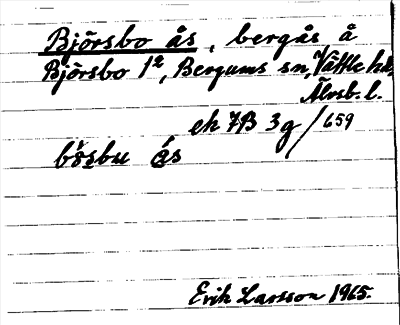 Björsbo ås, bergås å
Björsbo 1², Bergums sn, Vättle hd,
Älvsb. l.
ek 7B 3g/659
bö̀sbu ås
Erik Larsson 1965.